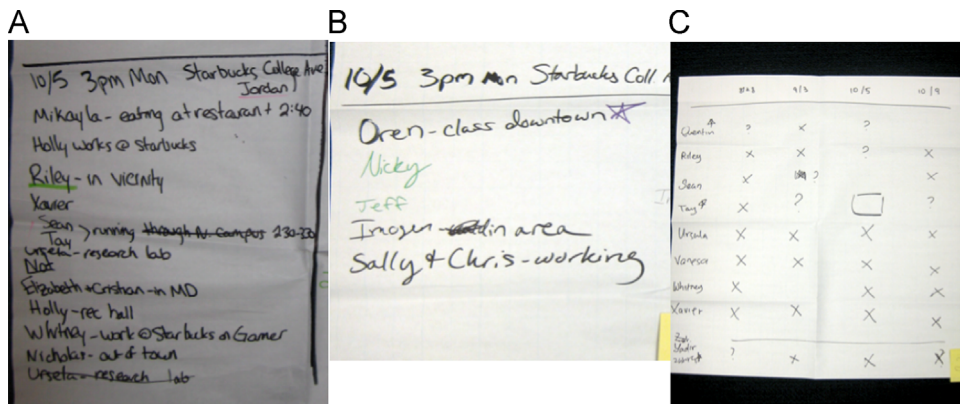 A
10/5 3pm Mon Starbucks College Ave
Jordan
Mikayla - eating at restaurant 2:40
Holly works @ Starbucks
Riley - in vicinity
Xavier
Sean
Tay > running through N. Campus 230-
Urseta - research lab
Elizabeth + Cristian - in MD
Holly - rec hall
Whitney - work @ Starbucks on Garner
Nicholas - out of town
Urseta - research lab
B
10/5 3pm Mon Starbucks Coll A
Oren - class downtown
Nicky
Jeff
Imogen - in area
Sally + Chris - working
C
9/3 10/5 10/9
Quentin ? X ?
Riley X X ? X
Sean X ? X
Tay X ? ?
Ursula X X X X
Vanessa X X X X
Whitney X X X
Xavier X X X X
? X X X